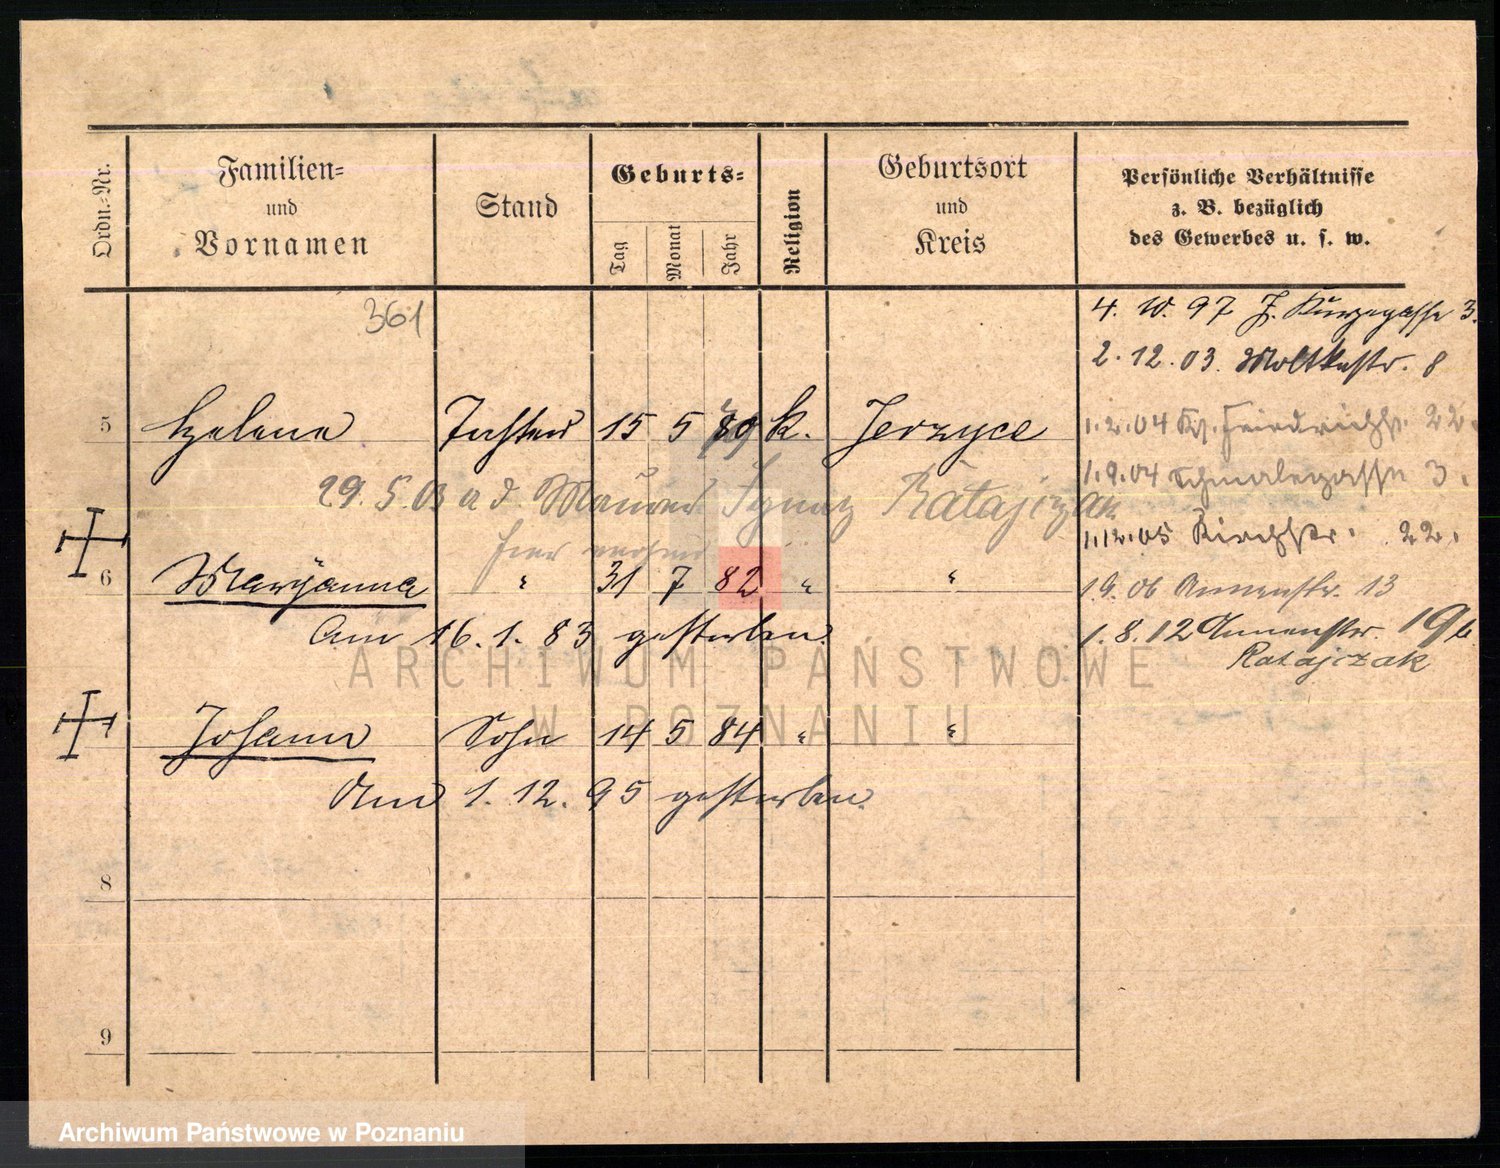 Ordn.-Nr.
Familien-
und
Vornamen
Stand
Geburts-
Tag
Monat
Jahr
Religion
Geburtsort
und
Kreis
Persönliche Verhältnisse
z. B. bezüglich
des Gewerbes u. s. w.
361
4. 10. 97 J. Kurzegasse 3.
2. 12. 03. Moltkestr. 8
5 Helene Tochter 15 5 K. Jerzyce
1.2.04 Friedrichstr. 22.
29. 5. 03 a d. Maurer Ignaz Ratajczak
1.9.04 Schmalegasse 3.
hier
1.12.05 Kirchstr. 22.
6 Maryanna " 31 7 82 " "
1.9.06 Annenstr. 13
Am 16. 1. 83 gestorben.
1.8.12 Annenstr. 19
Ratajczak
Johann Sohn 14 5 84 " "
Am 1. 12. 95 gestorben.
8
9
ARCHIWUM PAŃSTWOWE
W POZNANIU
Archiwum Państwowe w Poznaniu